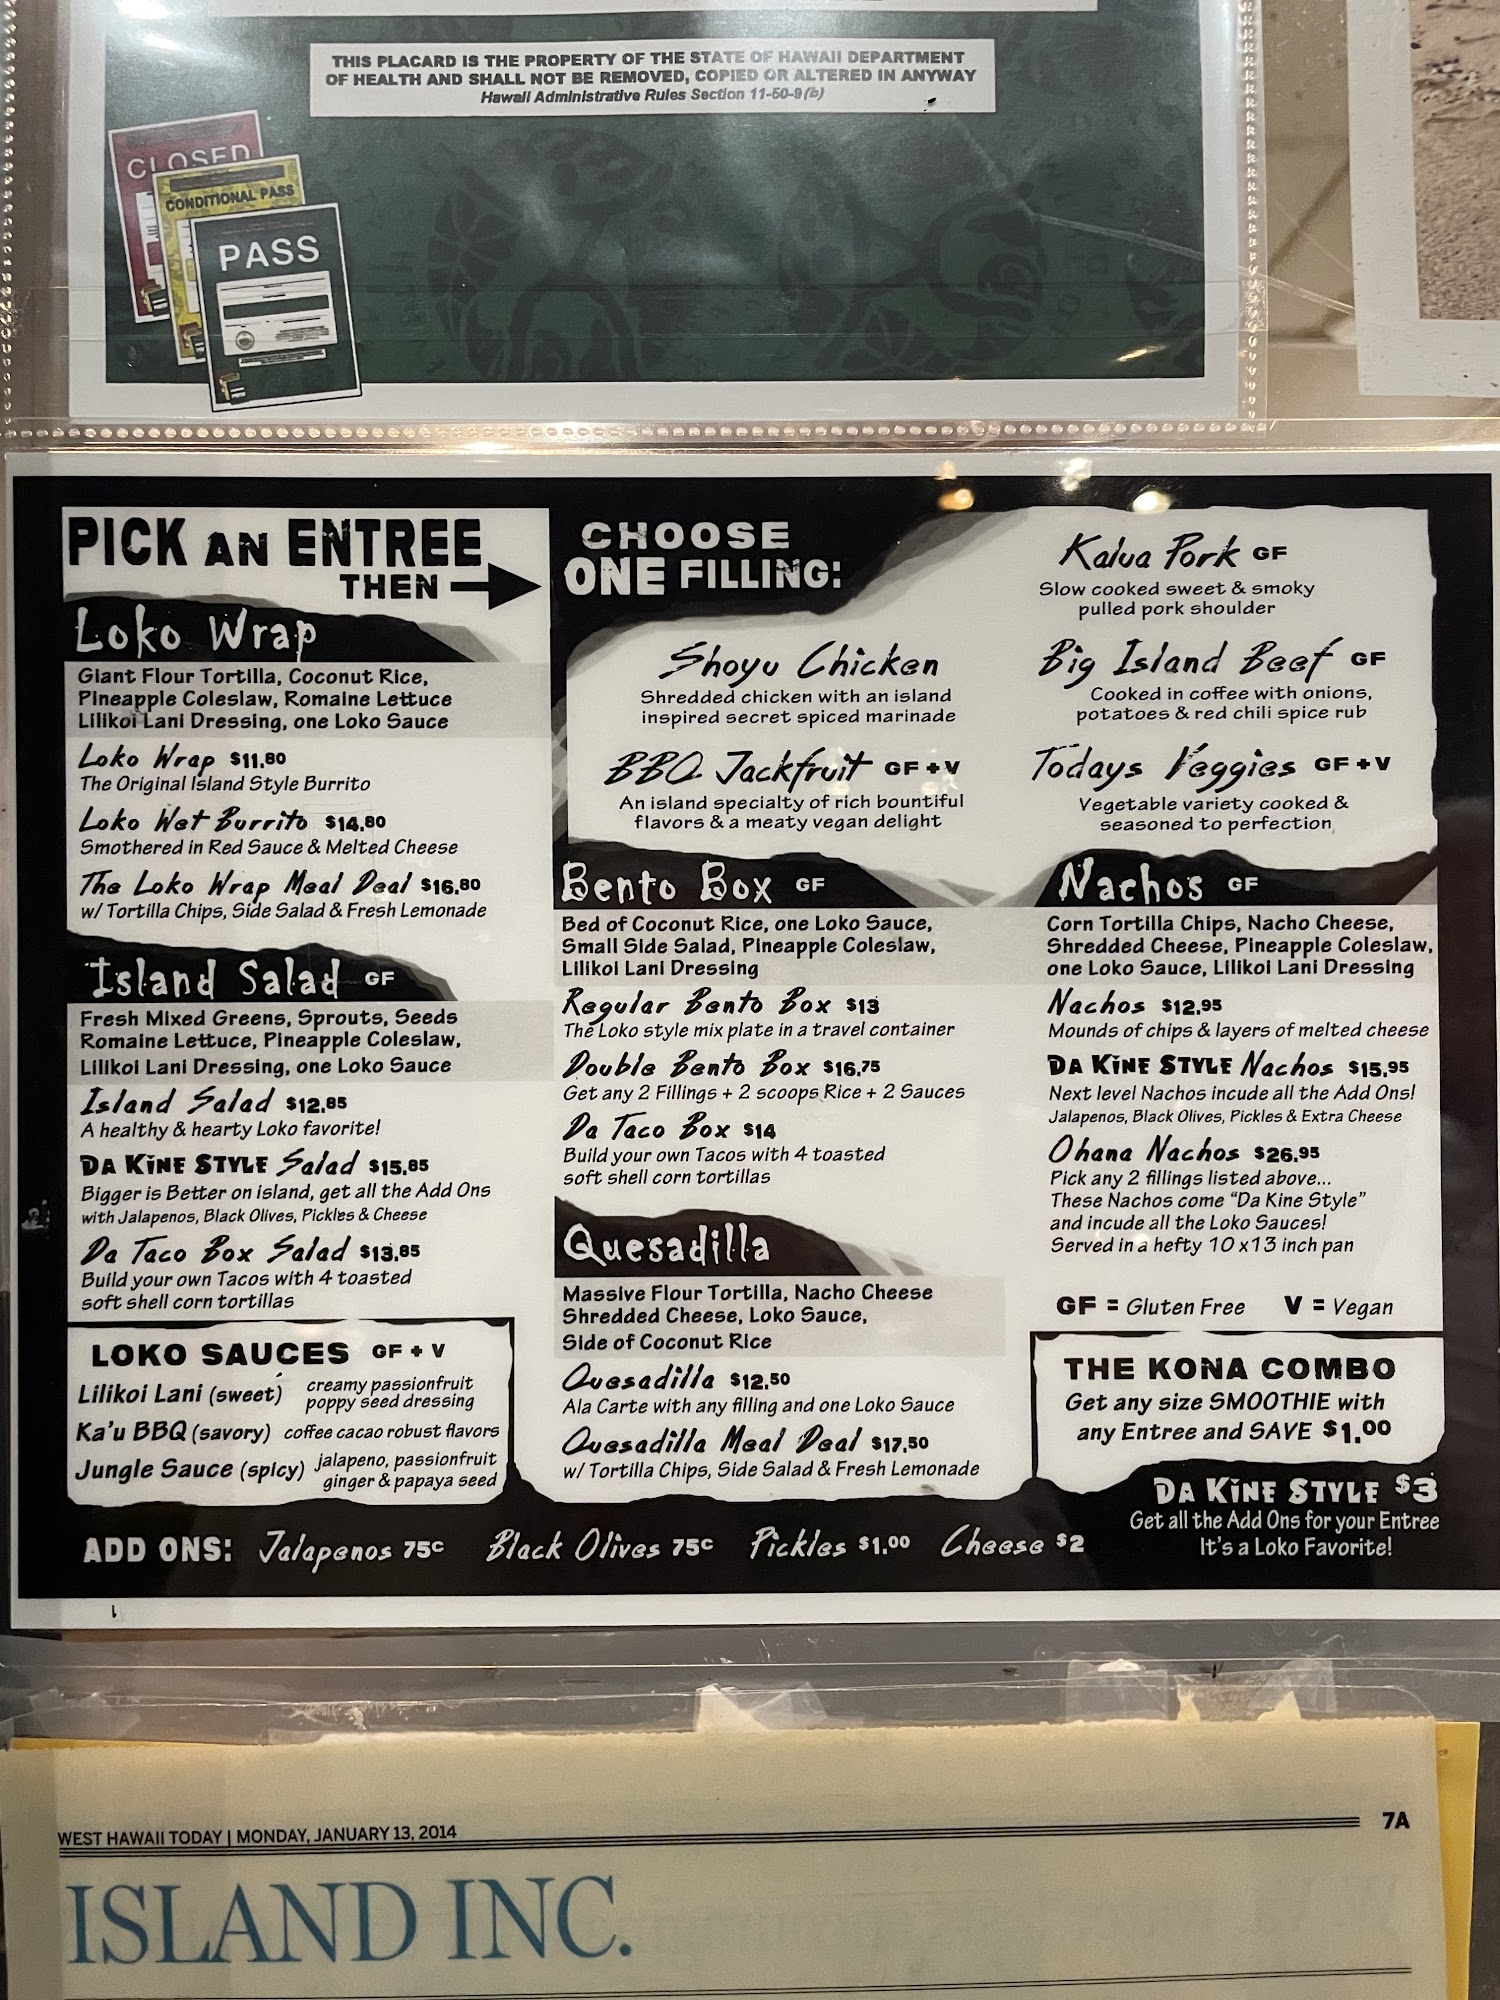 THIS PLACARD IS THE PROPERTY OF THE STATE OF HAWAII DEPARTMENT
OF HEALTH AND SHALL NOT BE REMOVED, COPIED OR ALTERED IN ANYWAY
Hawaii Administrative Rules Section 11-50-9(b)
CLOSED
CONDITIONAL PASS
PASS
PICK AN ENTREE
THEN
Loko Wrap
Giant Flour Tortilla, Coconut Rice,
Pineapple Coleslaw, Romaine Lettuce
Lilikoi Lani Dressing, one Loko Sauce
Loko Wrap $11.80
The Original Island Style Burrito
Loko Wet Burrito $14.80
Smothered in Red Sauce & Melted Cheese
The Loko Wrap Meal Deal $16.80
w/ Tortilla Chips, Side Salad & Fresh Lemonade
Island Salad GF
Fresh Mixed Greens, Sprouts, Seeds
Romaine Lettuce, Pineapple Coleslaw,
Lilikoi Lani Dressing, one Loko Sauce
Island Salad $12.85
A healthy & hearty Loko favorite!
DA KINE STYLE Salad $15.85
Bigger is Better on island, get all the Add Ons
with Jalapenos, Black Olives, Pickles & Cheese
Da Taco Box Salad $13.85
Build your own Tacos with 4 toasted
soft shell corn tortillas
LOKO SAUCES GF + V
Lilikoi Lani (sweet) creamy passionfruit
poppy seed dressing
Ka'u BBQ (savory) coffee cacao robust flavors
Jungle Sauce (spicy) jalapeno, passionfruit
ginger & papaya seed
CHOOSE
ONE FILLING:
Shoyu Chicken
Shredded chicken with an island
inspired secret spiced marinade
BBQ Jackfruit GF + V
An island specialty of rich bountiful
flavors & a meaty vegan delight
Kalua Pork GF
Slow cooked sweet & smoky
pulled pork shoulder
Big Island Beef GF
Cooked in coffee with onions,
potatoes & red chili spice rub
Todays Veggies GF + V
Vegetable variety cooked &
seasoned to perfection
Bento Box GF
Bed of Coconut Rice, one Loko Sauce,
Small Side Salad, Pineapple Coleslaw,
Lilikoi Lani Dressing
Regular Bento Box $13
The Loko style mix plate in a travel container
Double Bento Box $16.75
Get any 2 Fillings + 2 scoops Rice + 2 Sauces
Da Taco Box $14
Build your own Tacos with 4 toasted
soft shell corn tortillas
Quesadilla
Massive Flour Tortilla, Nacho Cheese
Shredded Cheese, Loko Sauce,
Side of Coconut Rice
Quesadilla $12.50
Ala Carte with any filling and one Loko Sauce
Quesadilla Meal Deal $17.50
w/ Tortilla Chips, Side Salad & Fresh Lemonade
Nachos GF
Corn Tortilla Chips, Nacho Cheese,
Shredded Cheese, Pineapple Coleslaw,
one Loko Sauce, Lilikoi Lani Dressing
Nachos $12.95
Mounds of chips & layers of melted cheese
DA KINE STYLE Nachos $15.95
Next level Nachos incude all the Add Ons!
Jalapenos, Black Olives, Pickles & Extra Cheese
Ohana Nachos $26.95
Pick any 2 fillings listed above...
These Nachos come "Da Kine Style"
and incude all the Loko Sauces!
Served in a hefty 10 x 13 inch pan
GF = Gluten Free V = Vegan
THE KONA COMBO
Get any size SMOOTHIE with
any Entree and SAVE $1.00
DA KINE STYLE $3
Get all the Add Ons for your Entree
It's a Loko Favorite!
ADD ONS: Jalapenos 75c Black Olives 75c Pickles $1.00 Cheese $2
WEST HAWAII TODAY | MONDAY, JANUARY 13, 2014 7A
ISLAND INC.